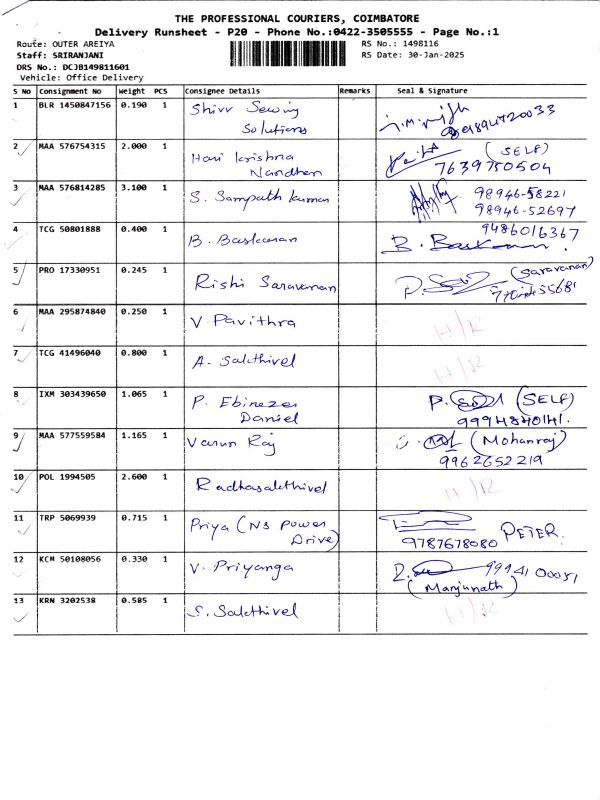 THE PROFESSIONAL COURIERS, COIMBATORE
Delivery Runsheet - P20 - Phone No.:0422-3505555 - Page No.:1
Route: OUTER AREIYA RS No.: 1498116
Staff: SRIRANJANI RS Date: 30-Jan-2025
DRS No.: DCJB149811601
Vehicle: Office Delivery
S No Consignment No Weight PCS Consignee Details Remarks Seal & Signature
1 BLR 1450847156 0.190 1 Shivv Sewing
Solutions
2 MAA 576754315 2.000 1 Hari krishna (SELF)
Nandhan 7639750504
3 MAA 576814285 3.100 1 S. Sampath kumar 98946-58221
98946-52697
4 TCG 50801888 0.400 1 B. Baskaran 9486016367
B. Baskaran
5 PRO 17330951 0.245 1 Rishi Saravanan (Saravanan)
6 MAA 295874840 0.250 1 V Pavithra H/R
7 TCG 41496040 0.800 1 A. Sakthivel H/R
8 IXM 303439650 1.065 1 P. Ebinezer (SELF)
Daniel 9994840141.
9 MAA 577559584 1.165 1 Varun Raj (Mohanraj)
9962652219
10 POL 1994505 2.600 1 Radhasakthivel H/R
11 TRP 5069939 0.715 1 Priya (NS Power PETER.
Drive) 9787678080
12 KCM 50108056 0.330 1 V. Priyanga 9994100051
(Manjunath)
13 KRN 3202538 0.585 1 S. Sakthivel H/R